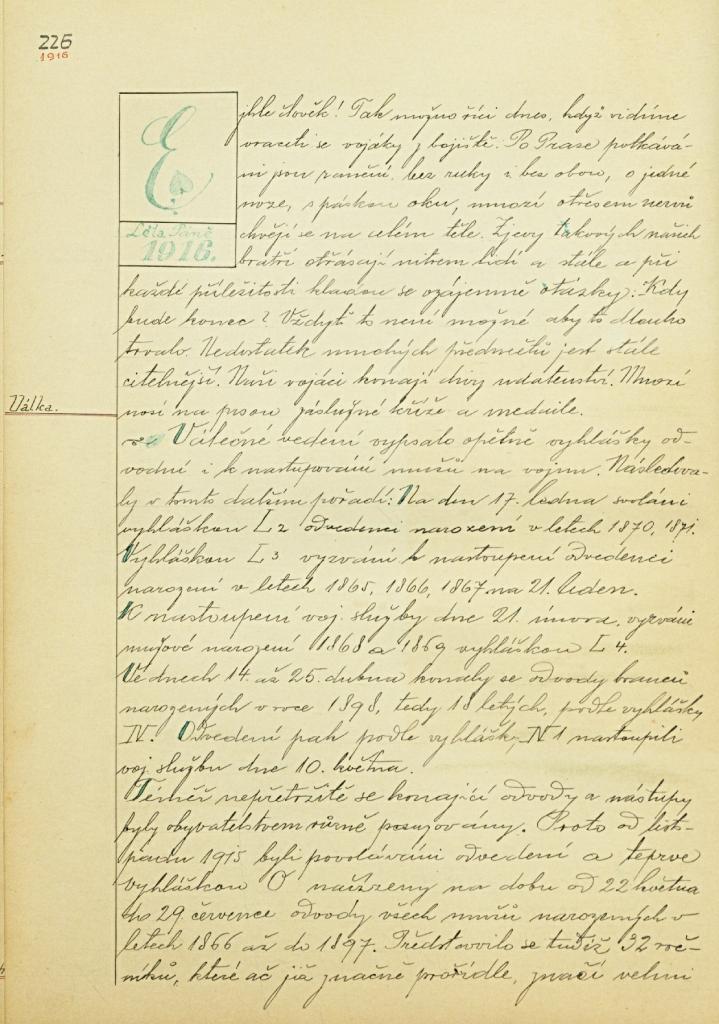 226
1916
E
Léta Páně
1916.
jhle člověk! Tak možno říci dnes, když vidíme
vraceti se vojáky z bojiště. Po Praze potkává-
ni jsou ranění, bez ruky i bez obou, o jedné
noze, s páskou oku, mnozí otřesem nervů
chvějí se na celém těle. Zjevy takových našich
bratří otřásají nitrem lidí a stále a při
každé příležitosti kladou se vzájemně otázky: Kdy
bude konec? Vždyť to není možné aby to dlouho
trvalo. Nedostatek mnohých předmětů jest stále
citelnější. Naši vojáci konají divy udatenství. Mnozí
nosí na prsou záslužné kříže a medaile.
Válka.
Válečné vedení vypsalo opětně vyhlášky od-
vodní i k nastupování mužů na vojnu. Následova-
ly v tomto dalším pořadí: Na den 17. ledna svoláni
vyhláškou L2 odvedenci narození v letech 1870, 1871.
Vyhláškou L3 vyzváni k nastoupení odvedenci
narození v letech 1865, 1866, 1867 na 21. leden.
K nastoupení voj. služby dne 21. února, vyzváni
mužové narození 1868 a 1869 vyhláškou L 4.
Ve dnech 14. až 25. dubna konaly se odvody branců
narozených v roce 1898, tedy 18 letých, podle vyhlášky
IV. Odvedení pak podle vyhlášky N 1 nastoupili
voj. službu dne 10. května.
Téměř nepřetržitě se konající odvody a nástupy
byly obyvatelstvem různě posuzovány. Proto od listo-
padu 1915 byli povoláváni odvedení a teprve
vyhláškou O nařízeny na dobu od 22 května
do 29. července odvody všech mužů narozených v
letech 1866 až do 1897. Představovilo se tudíž 32 roč-
níků, které ač již značně prořídle, značí velmi